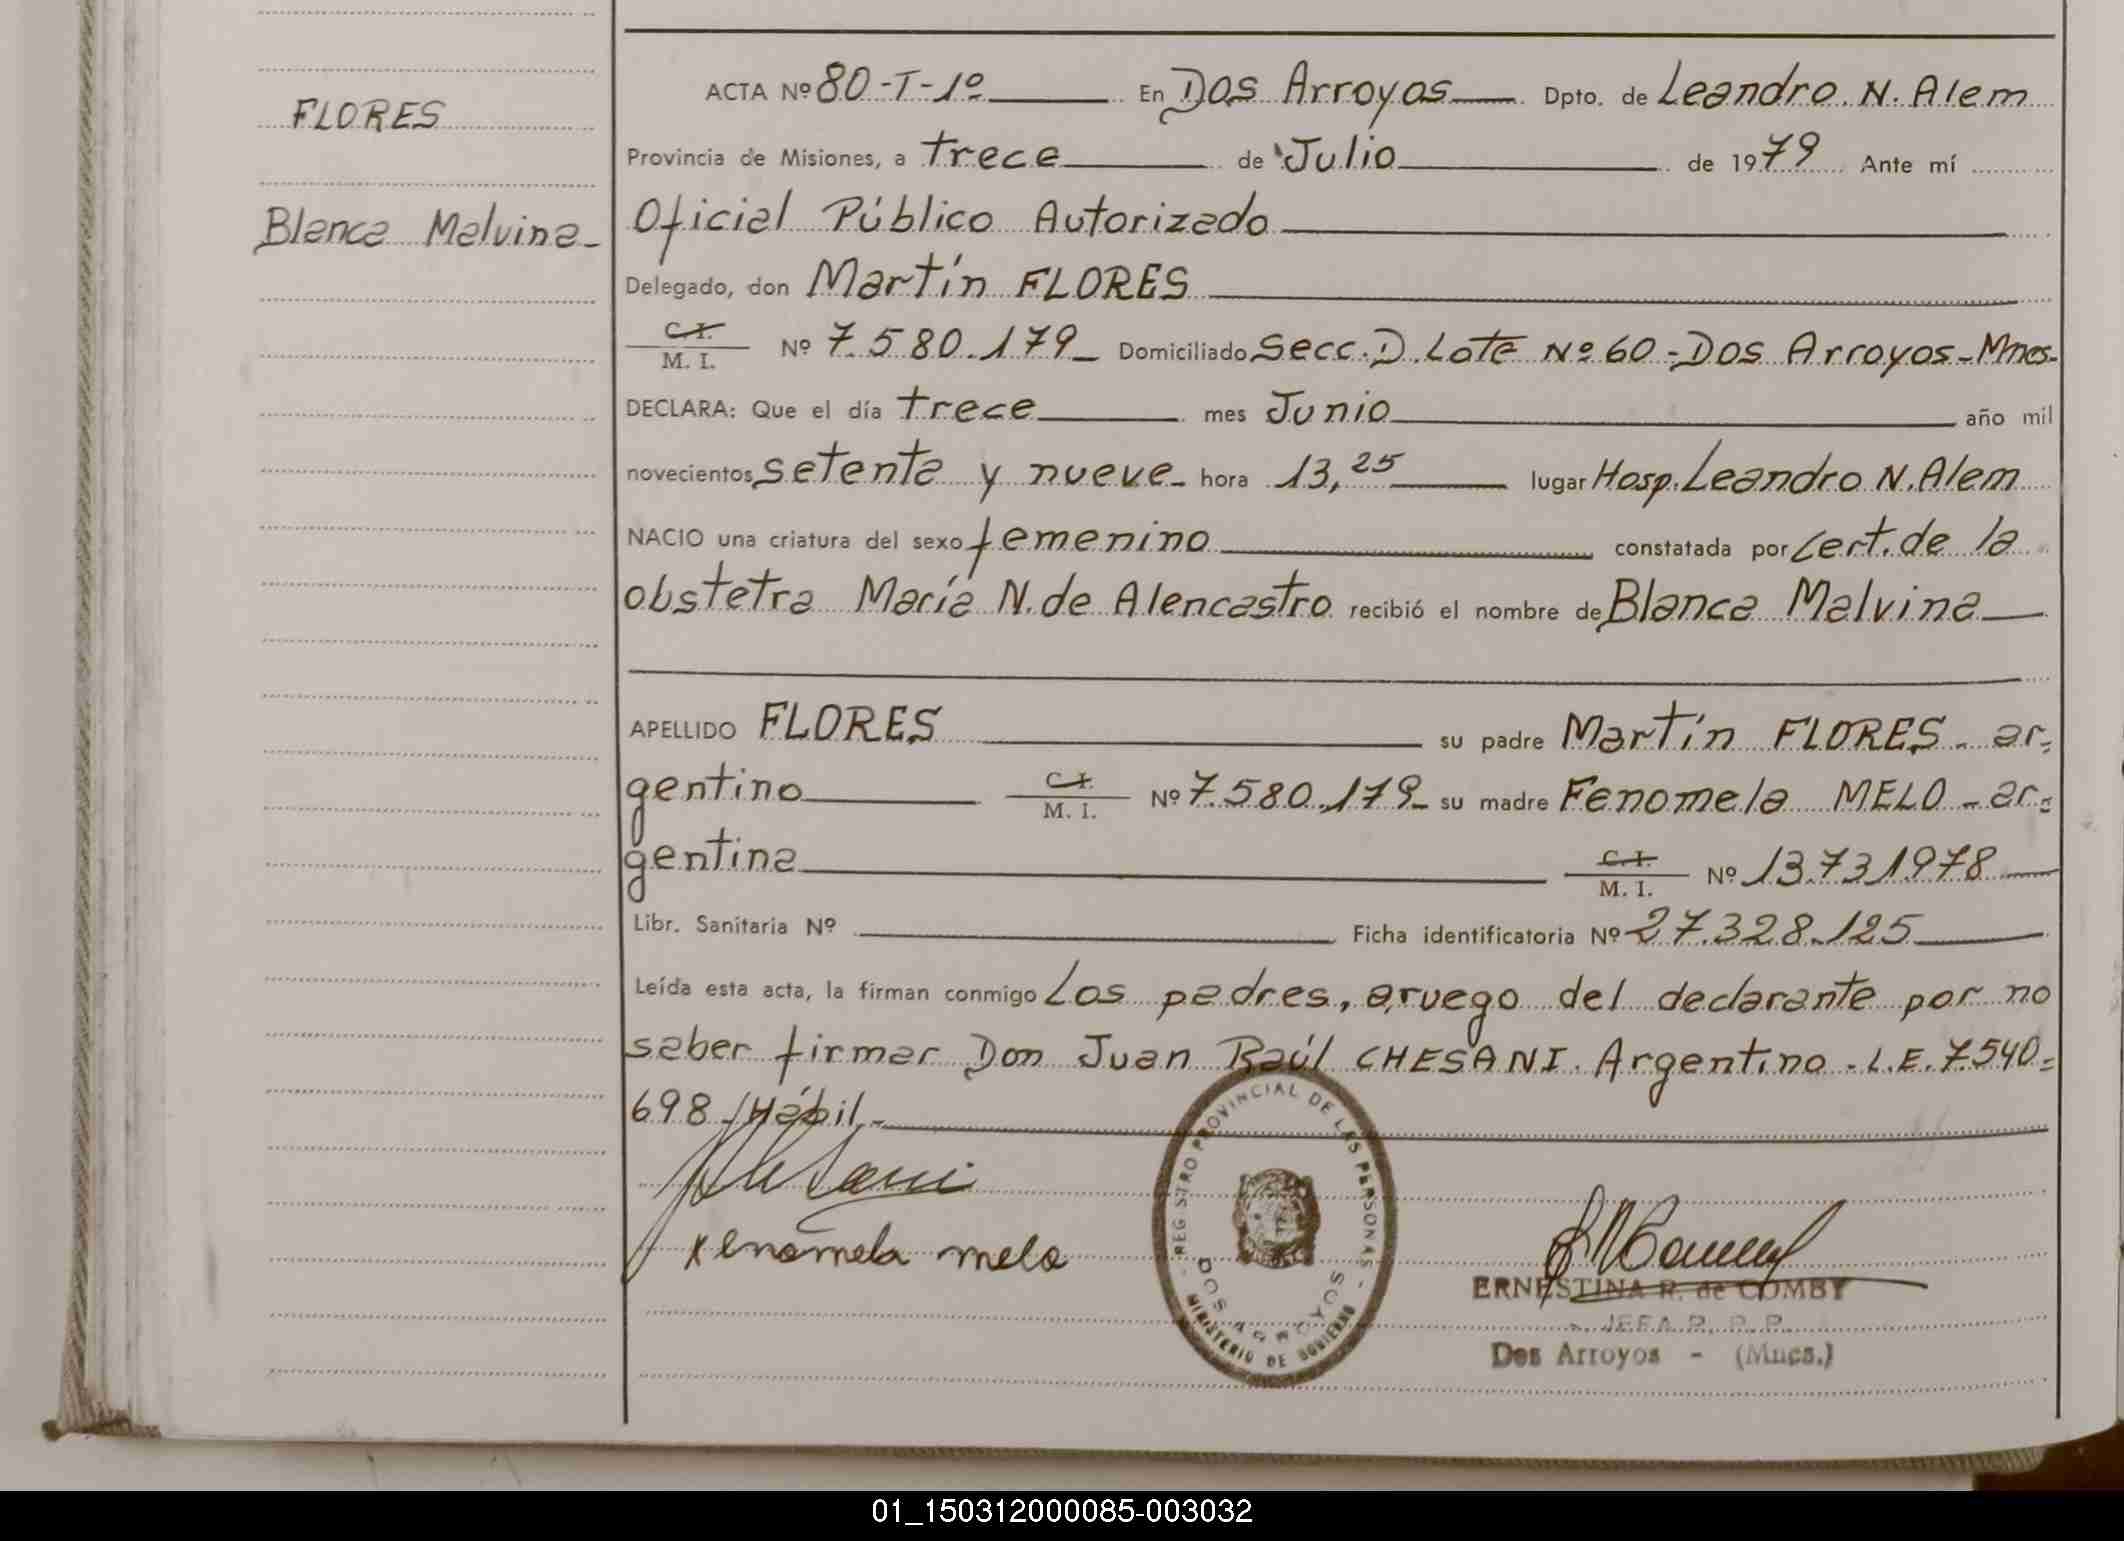 FLORES
Blanca Malvina-
ACTA Nº 80-T-1º En Dos Arroyos Dpto. de Leandro. N. Alem
Provincia de Misiones, a trece de Julio de 1979 Ante mí
Oficial Público Autorizado
Delegado, don Martín FLORES
C. I. / M. I. Nº 7.580.179_ Domiciliado Secc. D. Lote Nº 60-Dos Arroyos-Mnes-
DECLARA: Que el día trece mes Junio año mil
novecientos setenta y nueve- hora 13,25 lugar Hosp. Leandro N. Alem
NACIO una criatura del sexo femenino constatada por Cert. de la
obstetra María N. de Alencastro recibió el nombre de Blanca Malvina
APELLIDO FLORES su padre Martín FLORES- ar-
gentino C. I. / M. I. Nº 7.580.179- su madre Fenomela MELO- ar=
gentina C. I. / M. I. Nº 13.731.978
Libr. Sanitaria Nº Ficha identificatoria Nº 27.328.125
Leída esta acta, la firman conmigo Los padres, a ruego del declarante por no
saber firmar Don Juan Raúl CHESANI. Argentino-L.E. 7.540=
698/Hábil.-
Chesani
xenomela melo
REGISTRO PROVINCIAL DE LAS PERSONAS
DOS ARROYOS
MINISTERIO DE GOBIERNO
ERNESTINA R. de COMBY
JEFA R. P. P.
Dos Arroyos - (Mnes.)
01_150312000085-003032